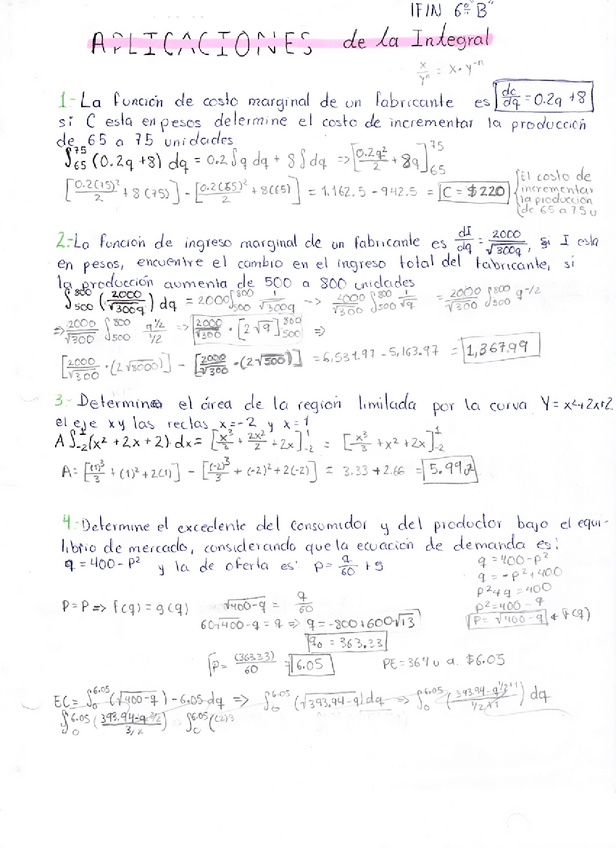 IFIN 6º "B"
APLICACIONES de la Integral
x/yⁿ = x · y⁻ⁿ
1.- La función de costo marginal de un fabricante es dc/dq = 0.2q + 8
si C esta en pesos determine el costo de incrementar la producción
de 65 a 75 unidades
∫₆₅⁷⁵ (0.2q + 8) dq = 0.2 ∫q dq + 8 ∫dq => [0.2q²/2 + 8q]₆₅⁷⁵
[0.2(75)²/2 + 8(75)] - [0.2(65)²/2 + 8(65)] = 1.162.5 - 942.5 = C = $220 {El costo de incrementar la producción de 65 a 75 u
2.- La función de ingreso marginal de un fabricante es dI/dq = 2000/√300q, si I esta
en pesos, encuentre el cambio en el ingreso total del fabricante, si
la producción aumenta de 500 a 800 unidades
∫₅₀₀⁸⁰⁰ (2000/√300q) dq = 2000 ∫₅₀₀⁸⁰⁰ 1/√300q --> 2000/√300 ∫₅₀₀⁸⁰⁰ 1/√q = 2000/√300 ∫₅₀₀⁸⁰⁰ q^-1/2
=> 2000/√300 ∫₅₀₀⁸⁰⁰ q^1/2 / 1/2 => 2000/√300 · [2√q]₅₀₀⁸⁰⁰ =>
[2000/√300 · (2√800)] - [2000/√300 · (2√500)] = 6,531.97 - 5,163.97 = 1,367.99
3- Determine el área de la región limitada por la curva Y = x² + 2x + 2
el eje x y las rectas x = -2 y x = 1
A ∫₋₂¹ (x² + 2x + 2) dx = [x³/3 + 2x²/2 + 2x]₋₂¹ = [x³/3 + x² + 2x]₋₂¹
A = [(1)³/3 + (1)² + 2(1)] - [(-2)³/3 + (-2)² + 2(-2)] = 3.33 + 2.66 = 5.99
4- Determine el excedente del consumidor y del productor bajo el equi-
librio de mercado, considerando que la ecuación de demanda es:
q = 400 - P² y la de oferta es: P = q/60 + 5
q = 400 - P²
q = -P² + 400
P² + q = 400
P² = 400 - q
P = √400 - q ← f(q)
P = P => f(q) = g(q)
√400 - q = q/60
60√400 - q = q => q = -800 + 600√13
q₀ = 363.33
P = (363.33)/60 = 6.05
PE = 36 u a $6.05
EC = ∫₀^6.05 (√400 - q) - 6.05 dq => ∫₀^6.05 (√393.94 - q) dq => ∫₀^6.05 dq
∫₀^6.05 (393.94 - q / 3/2) ∫₀^6.05